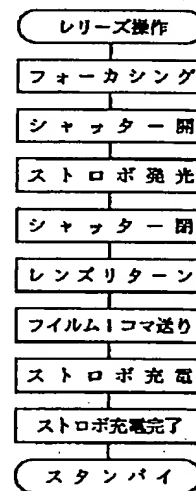 レリーズ操作
フォーカシング
シャッター開
ストロボ発光
シャッター閉
レンズリターン
フイルム1コマ送り
ストロボ充電
ストロボ充電完了
スタンバイ